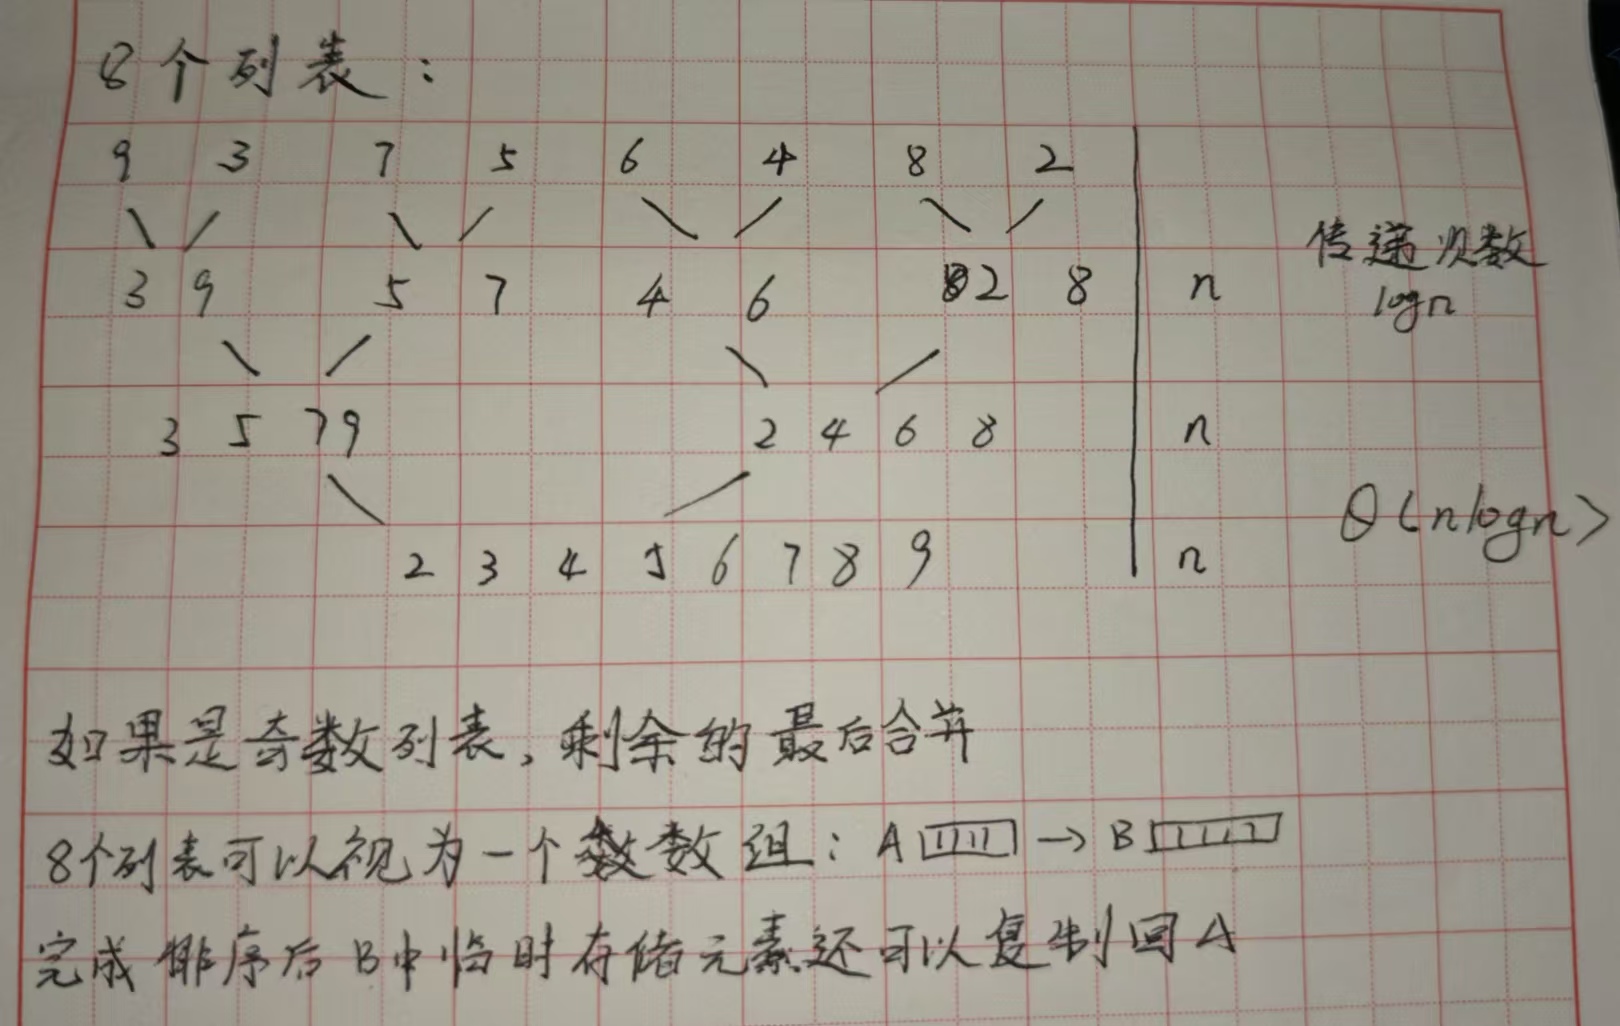 8个列表：
9 3 7 5 6 4 8 2
传递次数
3 9 5 7 4 6 2 8 n logn
3 5 7 9 2 4 6 8 n
θ(nlogn)
2 3 4 5 6 7 8 9 n
如果是奇数列表，剩余的最后合并
8个列表可以视为一个数组：A → B
完成排序后B中临时存储元素还可以复制回A